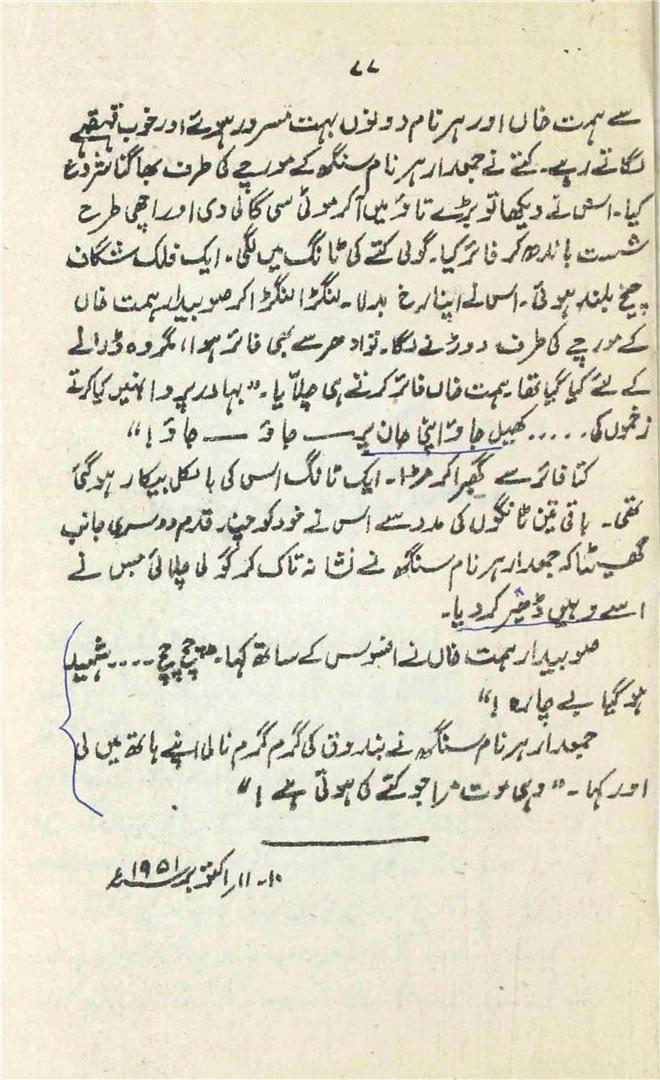 ۷۷
سے ہمت خاں اور ہرنام دونوں بہت مسرور ہوئے اور خوب قہقہے
لگاتے رہے۔ کتے نے جمعدار ہرنام سنگھ کے مورچے کی طرف بھاگنا شروع
کیا۔ اس نے دیکھا تو بڑے تاؤ میں آکر موٹی سی گالی دی اور اچھی طرح
شست باندھ کر فائر کیا۔ گولی کتے کی ٹانگ میں لگی۔ ایک فلک شگاف
چیخ بلند ہوئی۔ اس نے اپنا رخ بدلا۔ لنگڑا لنگڑا کر صوبیدار ہمت خاں
کے مورچے کی طرف دوڑنے لگا۔ تو ادھر سے بھی فائر ہوا، مگر وہ ڈرانے
کے لئے کیا گیا تھا۔ ہمت خاں فائر کرتے ہی چلّایا۔ "بہادر پروا نہیں کیا کرتے
زخموں کی ..... کھیل جاؤ اپنی جان پر — جاؤ — جاؤ!"
کتا فائر سے گھبرا کر مڑا۔ ایک ٹانگ اس کی بالکل بیکار ہوگئی
تھی۔ باقی تین ٹانگوں کی مدد سے اس نے خود کو چند قدم دوسری جانب
گھسیٹا کہ جمعدار ہرنام سنگھ نے نشانہ تاک کر گولی چلائی جس نے
اسے وہیں ڈھیر کر دیا۔
صوبیدار ہمت خاں نے افسوس کے ساتھ کہا۔ "چچ چچ .... شہید
ہو گیا بے چارہ!"
جمعدار ہرنام سنگھ نے بندوق کی گرم گرم نالی اپنے ہاتھ میں لی
اور کہا۔ "وہی موت مرا جو کتے کی ہوتی ہے!"
۱۰۔ ۱۱ر اکتوبر ۱۹۵۱ء